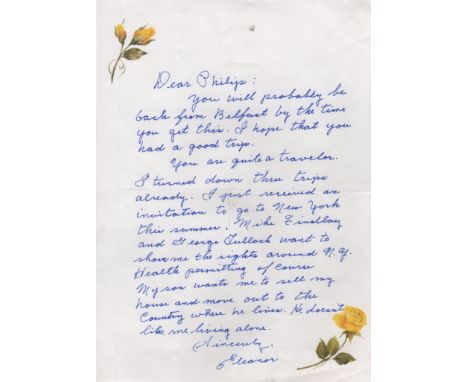 Dear Philip:
You will probably be
back from Belfast by the time
you get this. I hope that you
had a good trip.
You are quite a travelor.
I turned down three trips
already. I just received an
invitation to go to New York
this summer. Mike Findlay
and George Tulloch want to
show me the sights around N.Y.
Health permitting of course.
My son wants me to sell my
house and move out to the
Country where he lives. He doesn't
like me living alone.
Sincerely,
Eleanor